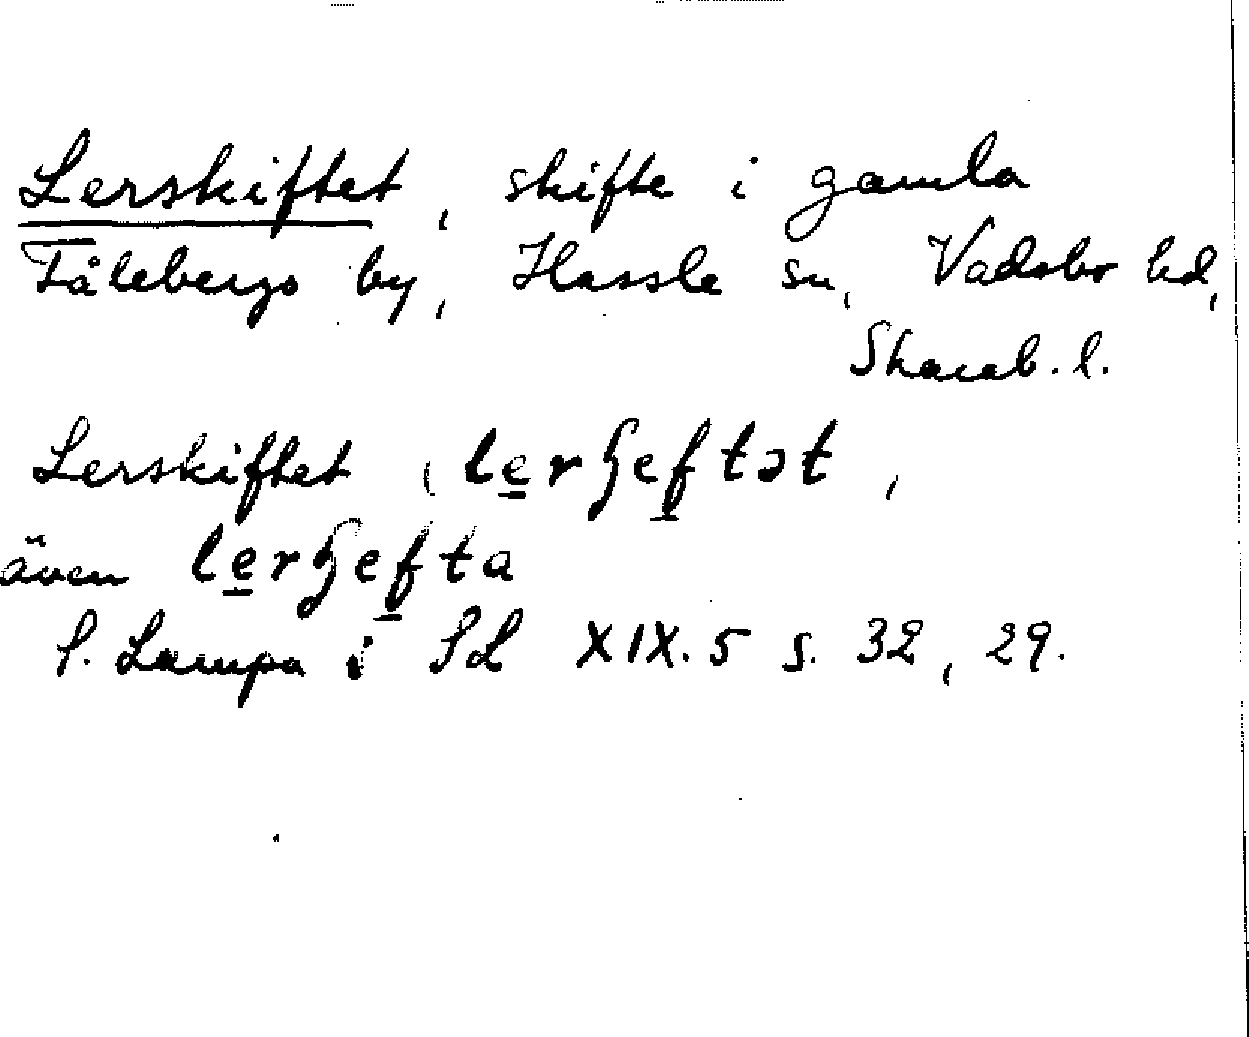 Lerskiftet, skifte i gamla
Fålebergs by, Hassle sn, Vadsbo hd,
Skarab. l.
Lerskiftet,
även
S. Lampa i SL XIX.5 s. 32, 29.